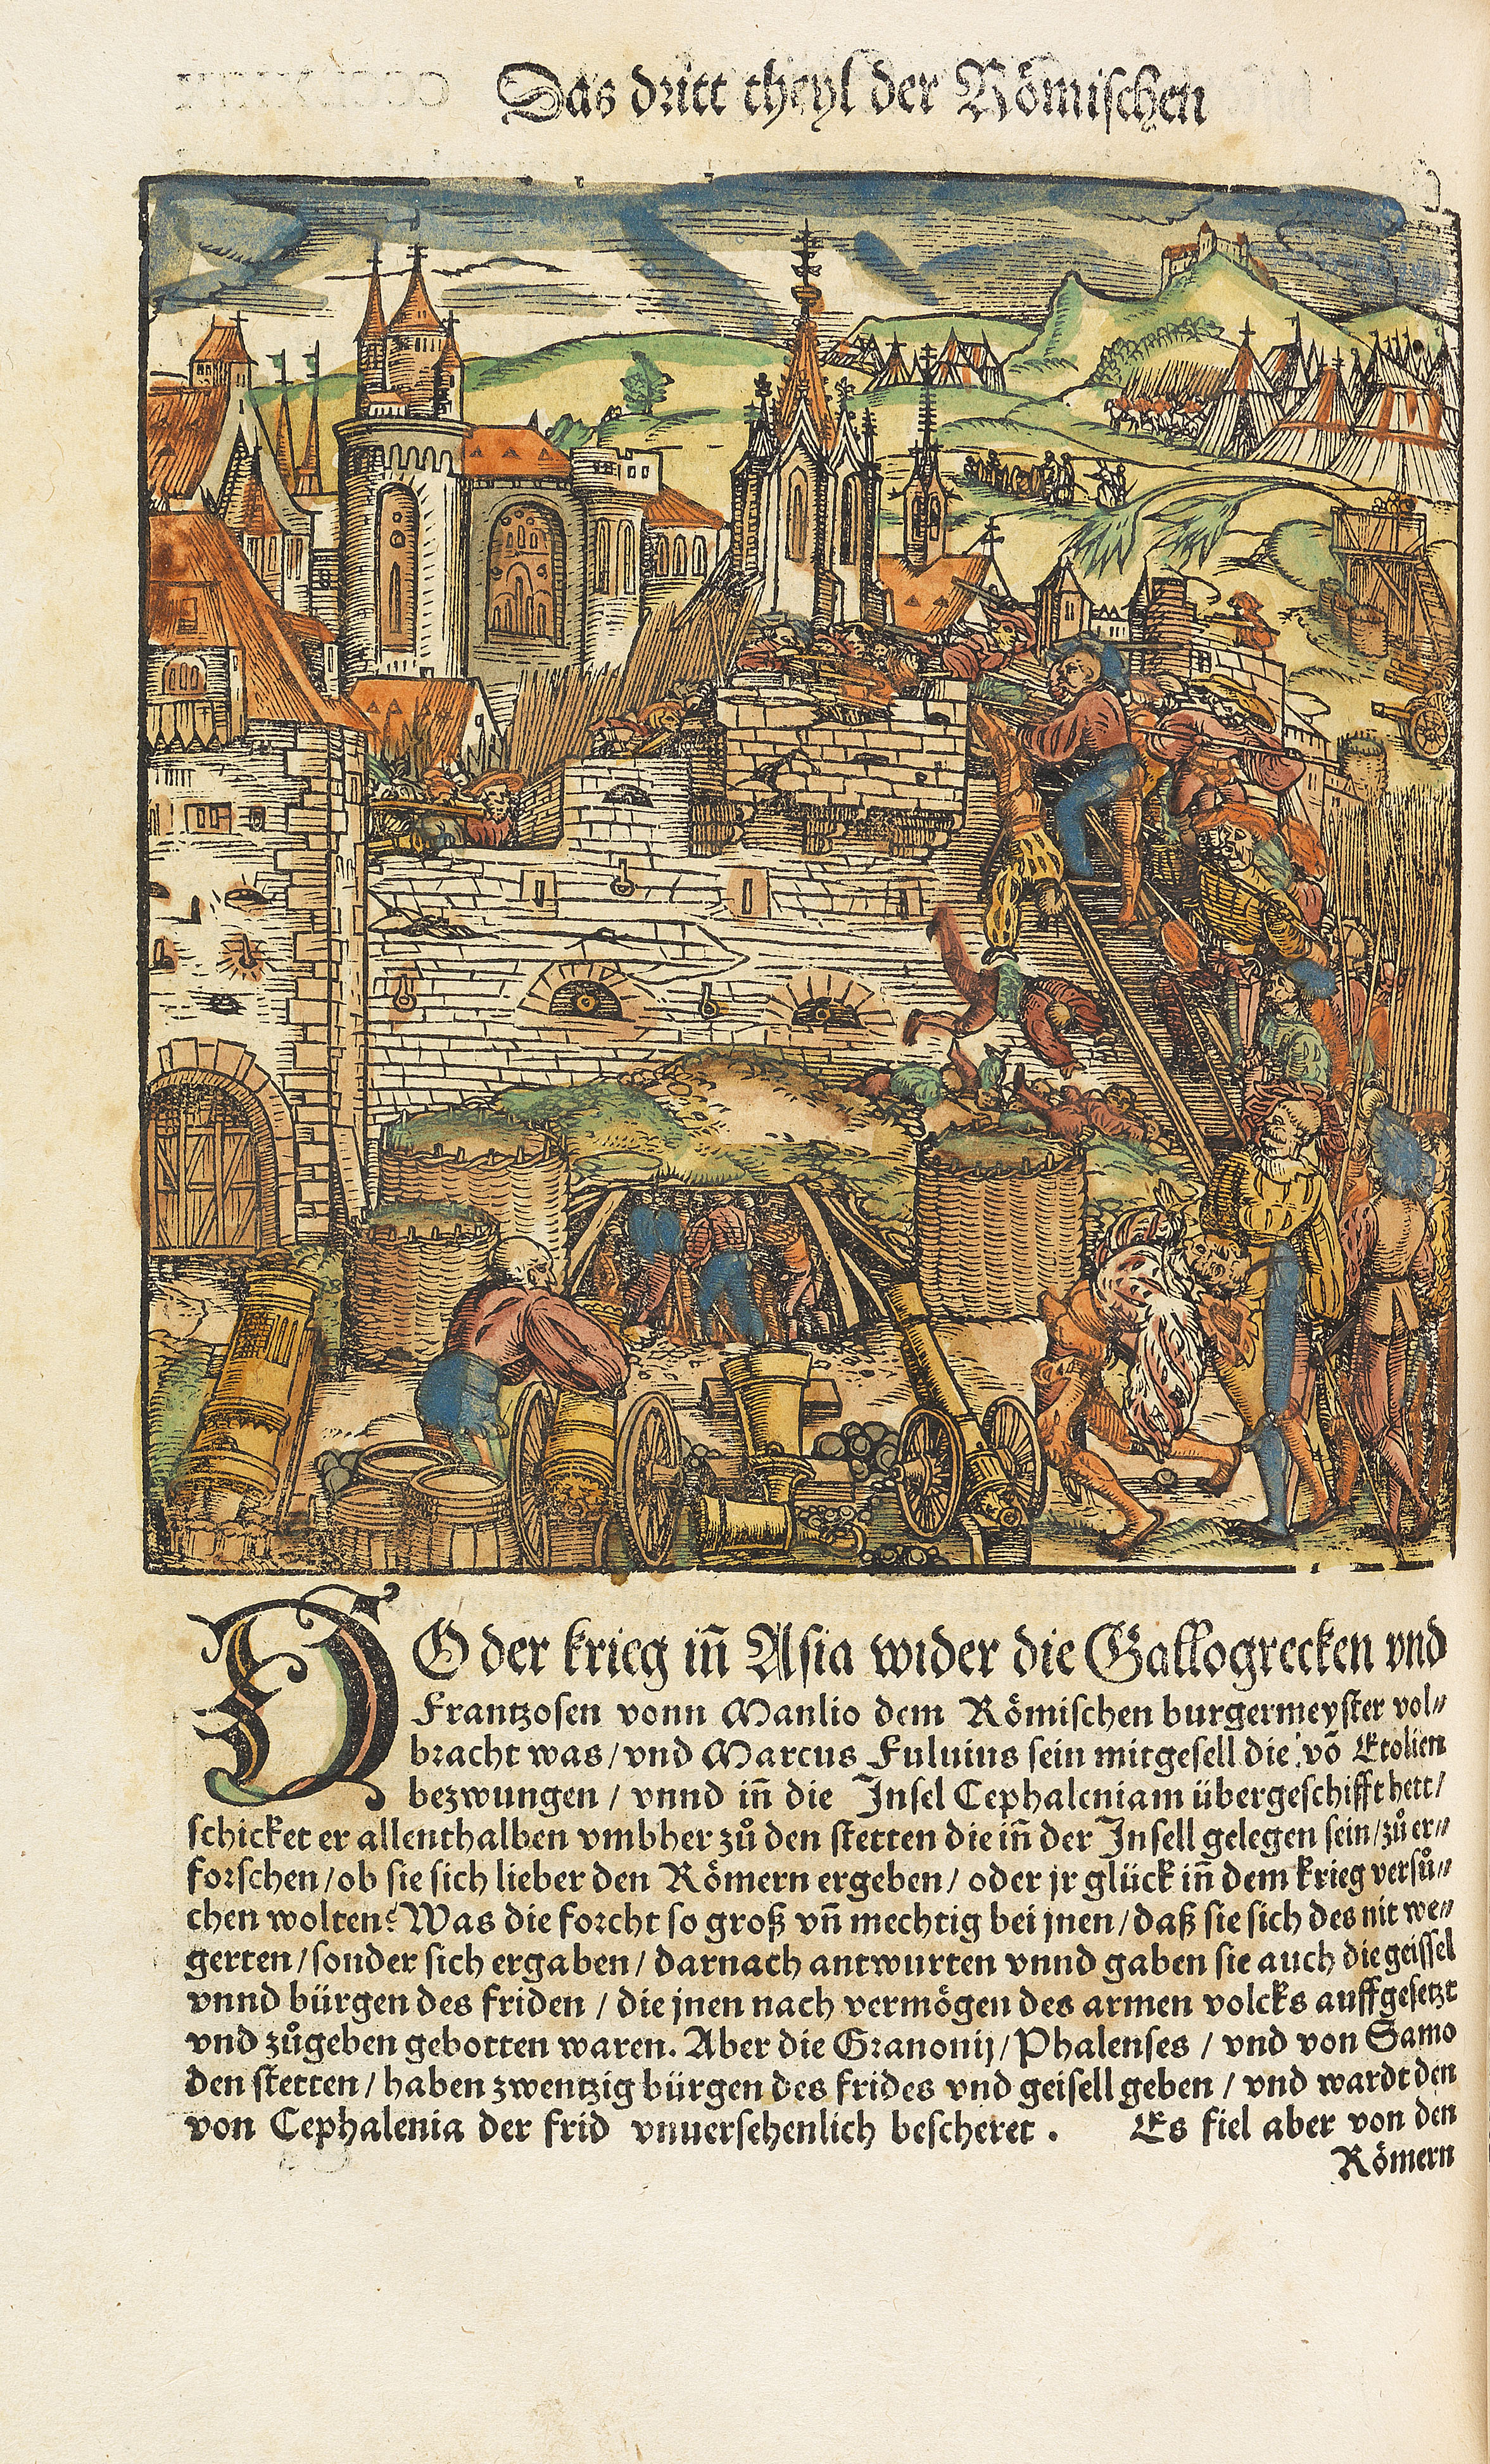 Das dritt theyl der Römischen
DO der krieg iñ Asia wider die Gallogrecken vnd
Frantzosen vonn Manlio dem Römischen burgermeyster vol⸗
bracht was / vnd Marcus Fuluius sein mitgesell die võ Etolien
bezwungen / vnnd iñ die Insel Cephaleniam übergeschifft hett /
schicket er allenthalben vmbher zů den stetten die iñ der Insell gelegen sein / zů er⸗
forschen / ob sie sich lieber den Römern ergeben / oder jr glück iñ dem krieg versů⸗
chen wolten? Was die forcht so groß vñ mechtig bei jnen / daß sie sich des nit we⸗
gerten / sonder sich ergaben / darnach antwurten vnnd gaben sie auch die geissel
vnnd bürgen des friden / die jnen nach vermögen des armen volcks auffgesetzt
vnd zůgeben gebotten waren. Aber die Granonij / Phalenses / vnd von Samo
den stetten / haben zwentzig bürgen des frides vnd geisell geben / vnd wardt den
von Cephalenia der frid vnuersehenlich bescheret. Es fiel aber von den
Römern